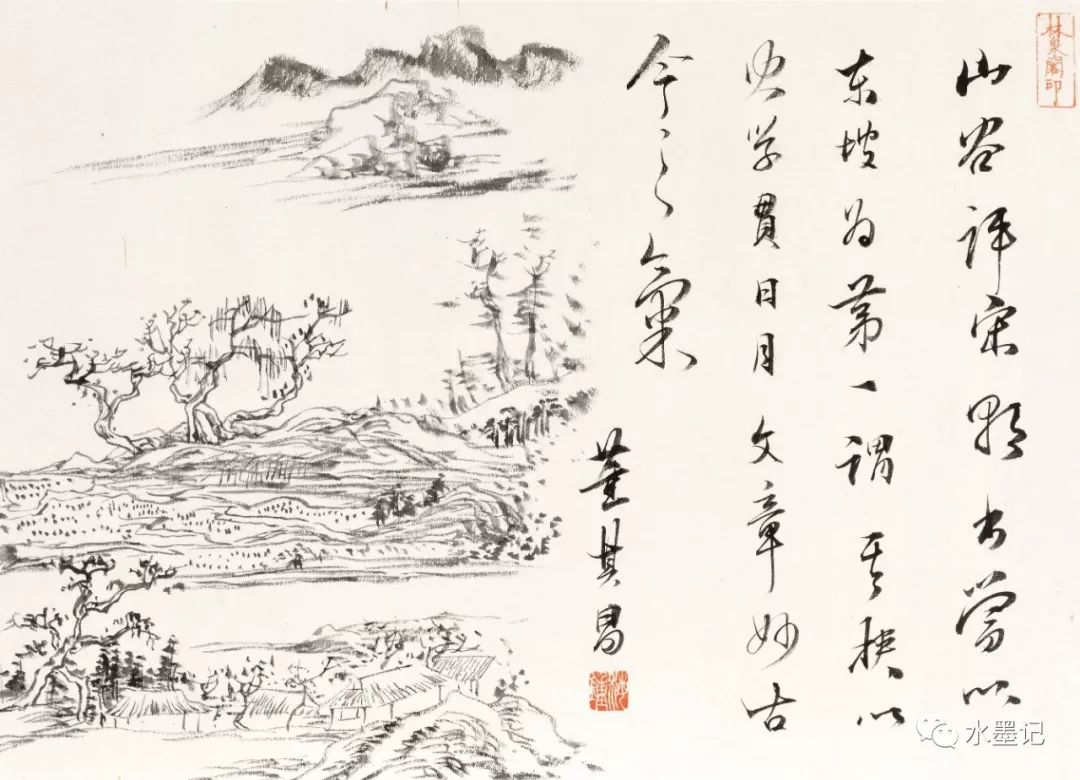 林泉閣印
山谷評宋朝書嘗以
东坡為第一謂其挾以
学貫日月文章妙古
今之氣
董其昌
水墨记